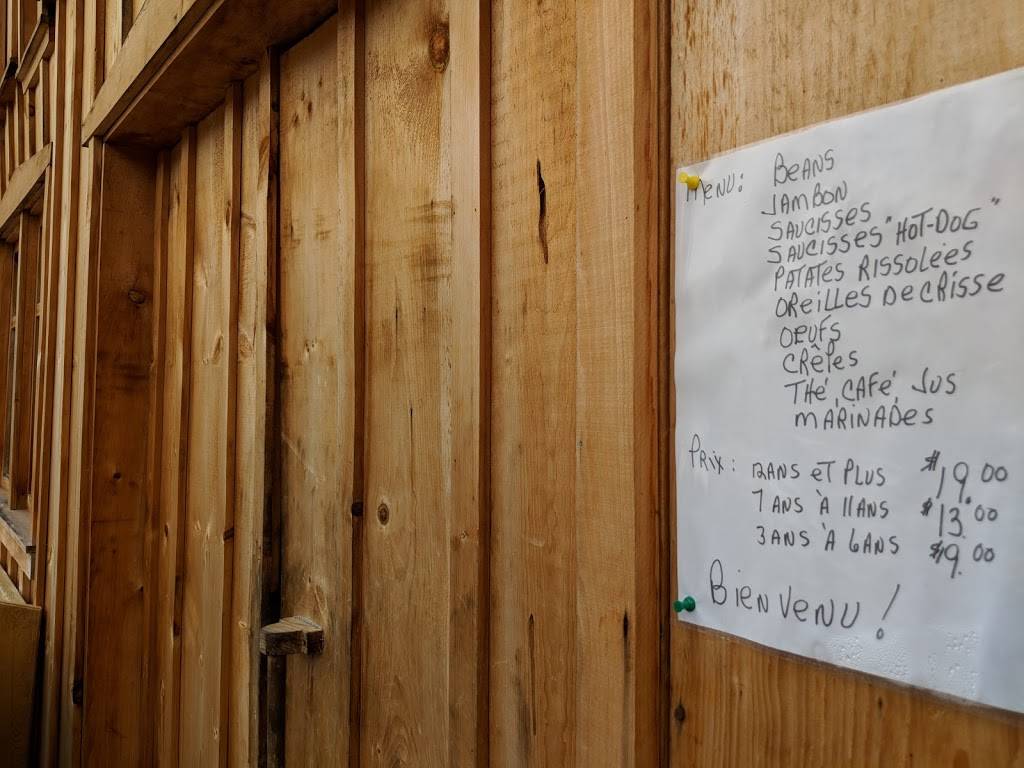 MENU: BEANS
JAMBON
SAUCISSES
SAUCISSES "HOT-DOG"
PATATES RISSOLÉES
OREILLES DE CRISSE
OEUFS
CRÊPES
THÉ, CAFÉ, JUS
MARINADES
PRIX: 12ANS ET PLUS $19.00
7 ANS À 11ANS $13.00
3ANS À 6ANS $9.00
BIENVENU!